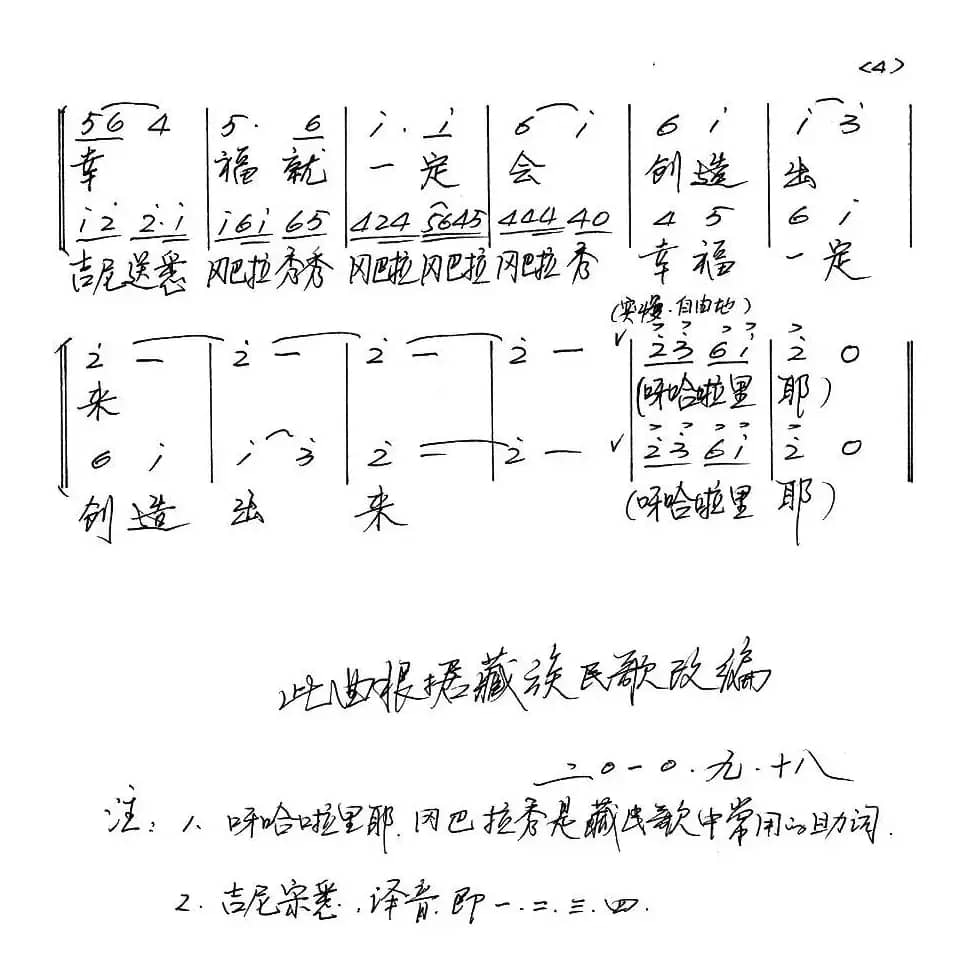 <4>
56 4 | 5· 6 | i · i | 6 i | 6 i | i 3
幸 福 就 一 定 会 创 造 出
i 2 2·i | i6i 65 | 424 5645 | 444 40 | 4 5 | 6 i
吉尼送悉 冈巴拉秀秀 冈巴拉冈巴拉冈巴拉秀 幸福 一定
(突慢·自由地)
2 — | 2 — | 2 — | 2 — ∨ | 23 6i | 2 0
来 (呀哈啦里 耶)
6 i | i 3 | 2 — | 2 — ∨ | 23 6i | 2 0
创造 出 来 (呀哈啦里 耶)
此曲根据藏族民歌改编
二〇一〇.九.十八
注: 1、呀哈啦里耶.冈巴拉秀是藏民歌中常用的助词.
2.吉尼宗悉.译音.即一.二.三.四.